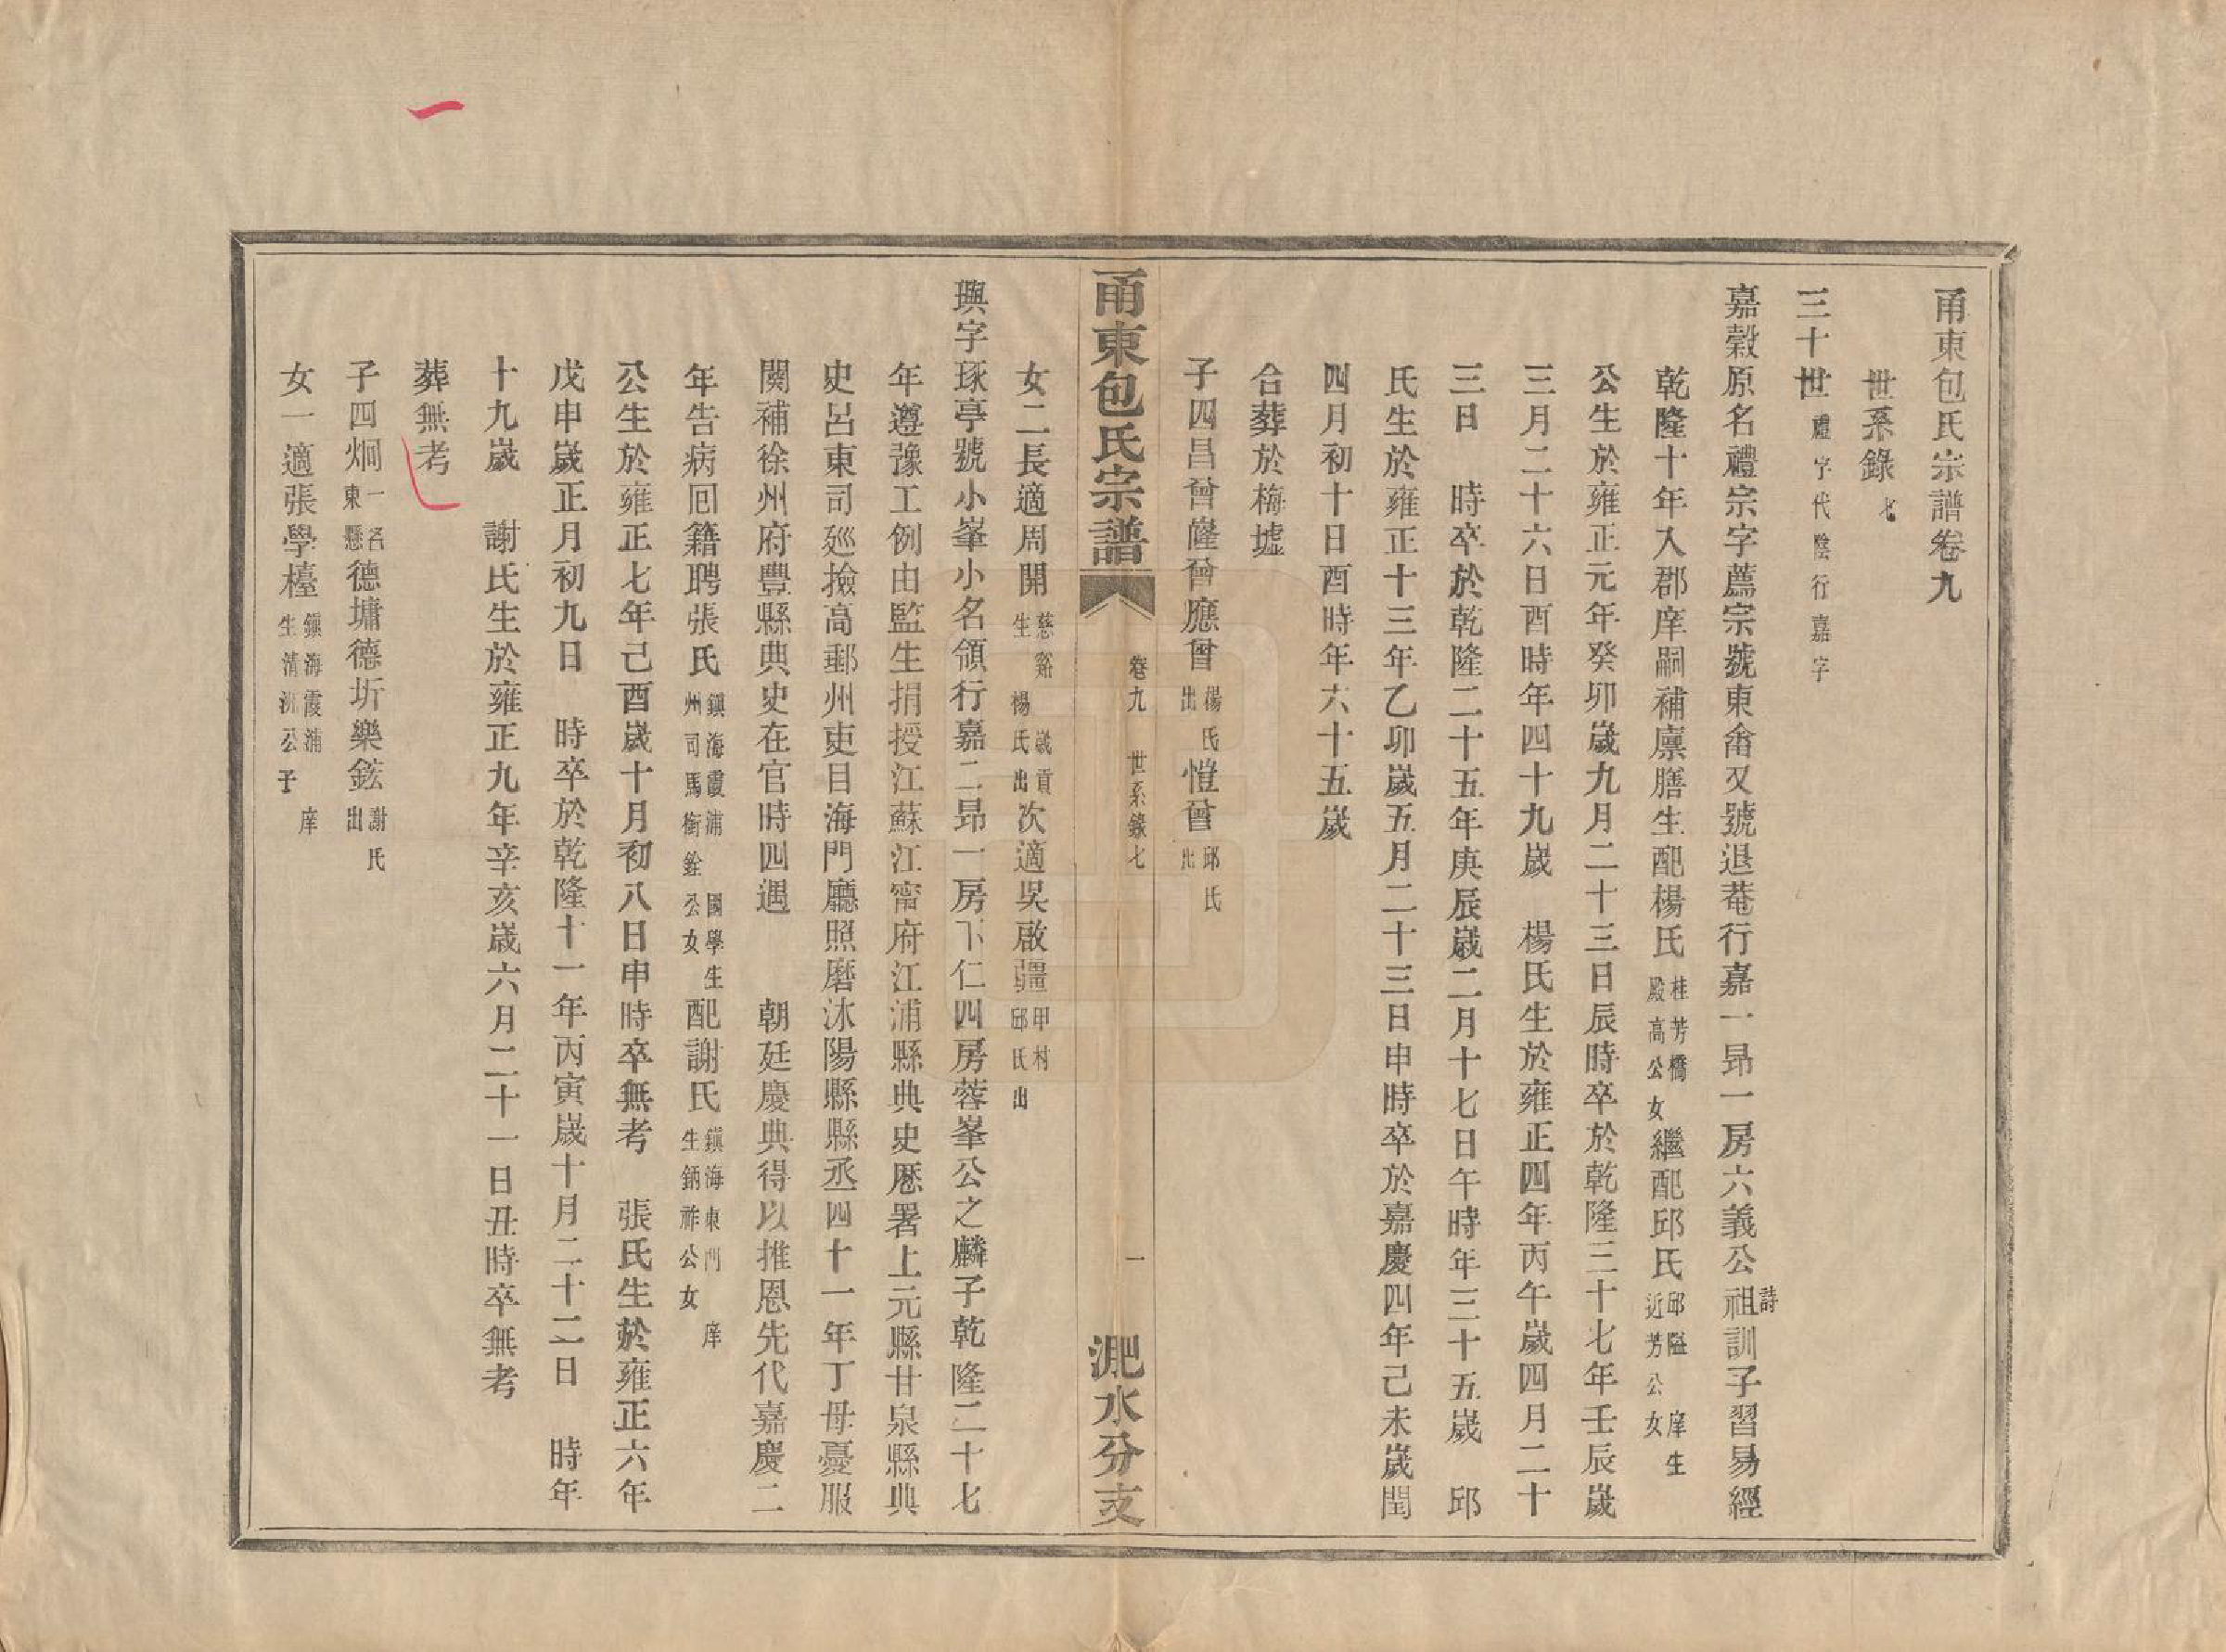 甬東包氏宗譜卷九
世系錄七
三十世禮字代陰行嘉字
嘉穀原名禮宗字薦宗號東畬又號退菴行嘉一昂一房六義公祖詩訓子習易經
乾隆十年入郡庠嗣補廪膳生配楊氏桂芳橋殿高公女繼配邱氏邱隘庠生近芳公女
公生於雍正元年癸卯歲九月二十三日辰時卒於乾隆三十七年壬辰歲
三月二十六日酉時年四十九歲　楊氏生於雍正四年丙午歲四月二十
三日　時卒於乾隆二十五年庚辰歲二月十七日午時年三十五歲　邱
氏生於雍正十三年乙卯歲五月二十三日申時卒於嘉慶四年己未歲閏
四月初十日酉時年六十五歲
合葬於梅墟
子四昌曾隆曾應曾楊氏出愷曾邱氏出
甬東包氏宗譜　卷九　世系錄七　一　淝水分支
女二長適周開慈谿歲貢生楊氏出次適吳啟疆甲村邱氏出
璵字琢亭號小峯小名領行嘉二昂一房下仁四房蓉峯公之麟子乾隆二十七
年遵豫工例由監生捐授江蘇江甯府江浦縣典史歷署上元縣甘泉縣典
史呂東司廵撿高郵州吏目海門廳照磨沭陽縣縣丞四十一年丁母憂服
闋補徐州府豐縣典史在官時四遇　朝廷慶典得以推恩先代嘉慶二
年告病回籍聘張氏鎮海霞浦國學生州司馬銜銓公女配謝氏鎮海東門庠生鈵祚公女
公生於雍正七年己酉歲十月初八日申時卒無考　張氏生於雍正六年
戊申歲正月初九日　時卒於乾隆十一年丙寅歲十月二十二日　時年
十九歲　謝氏生於雍正九年辛亥歲六月二十一日丑時卒無考
葬無考
子四炯一名東懸德墉德圻樂鋐謝氏出
女一適張學㙜鎮海霞浦庠生清洲公子